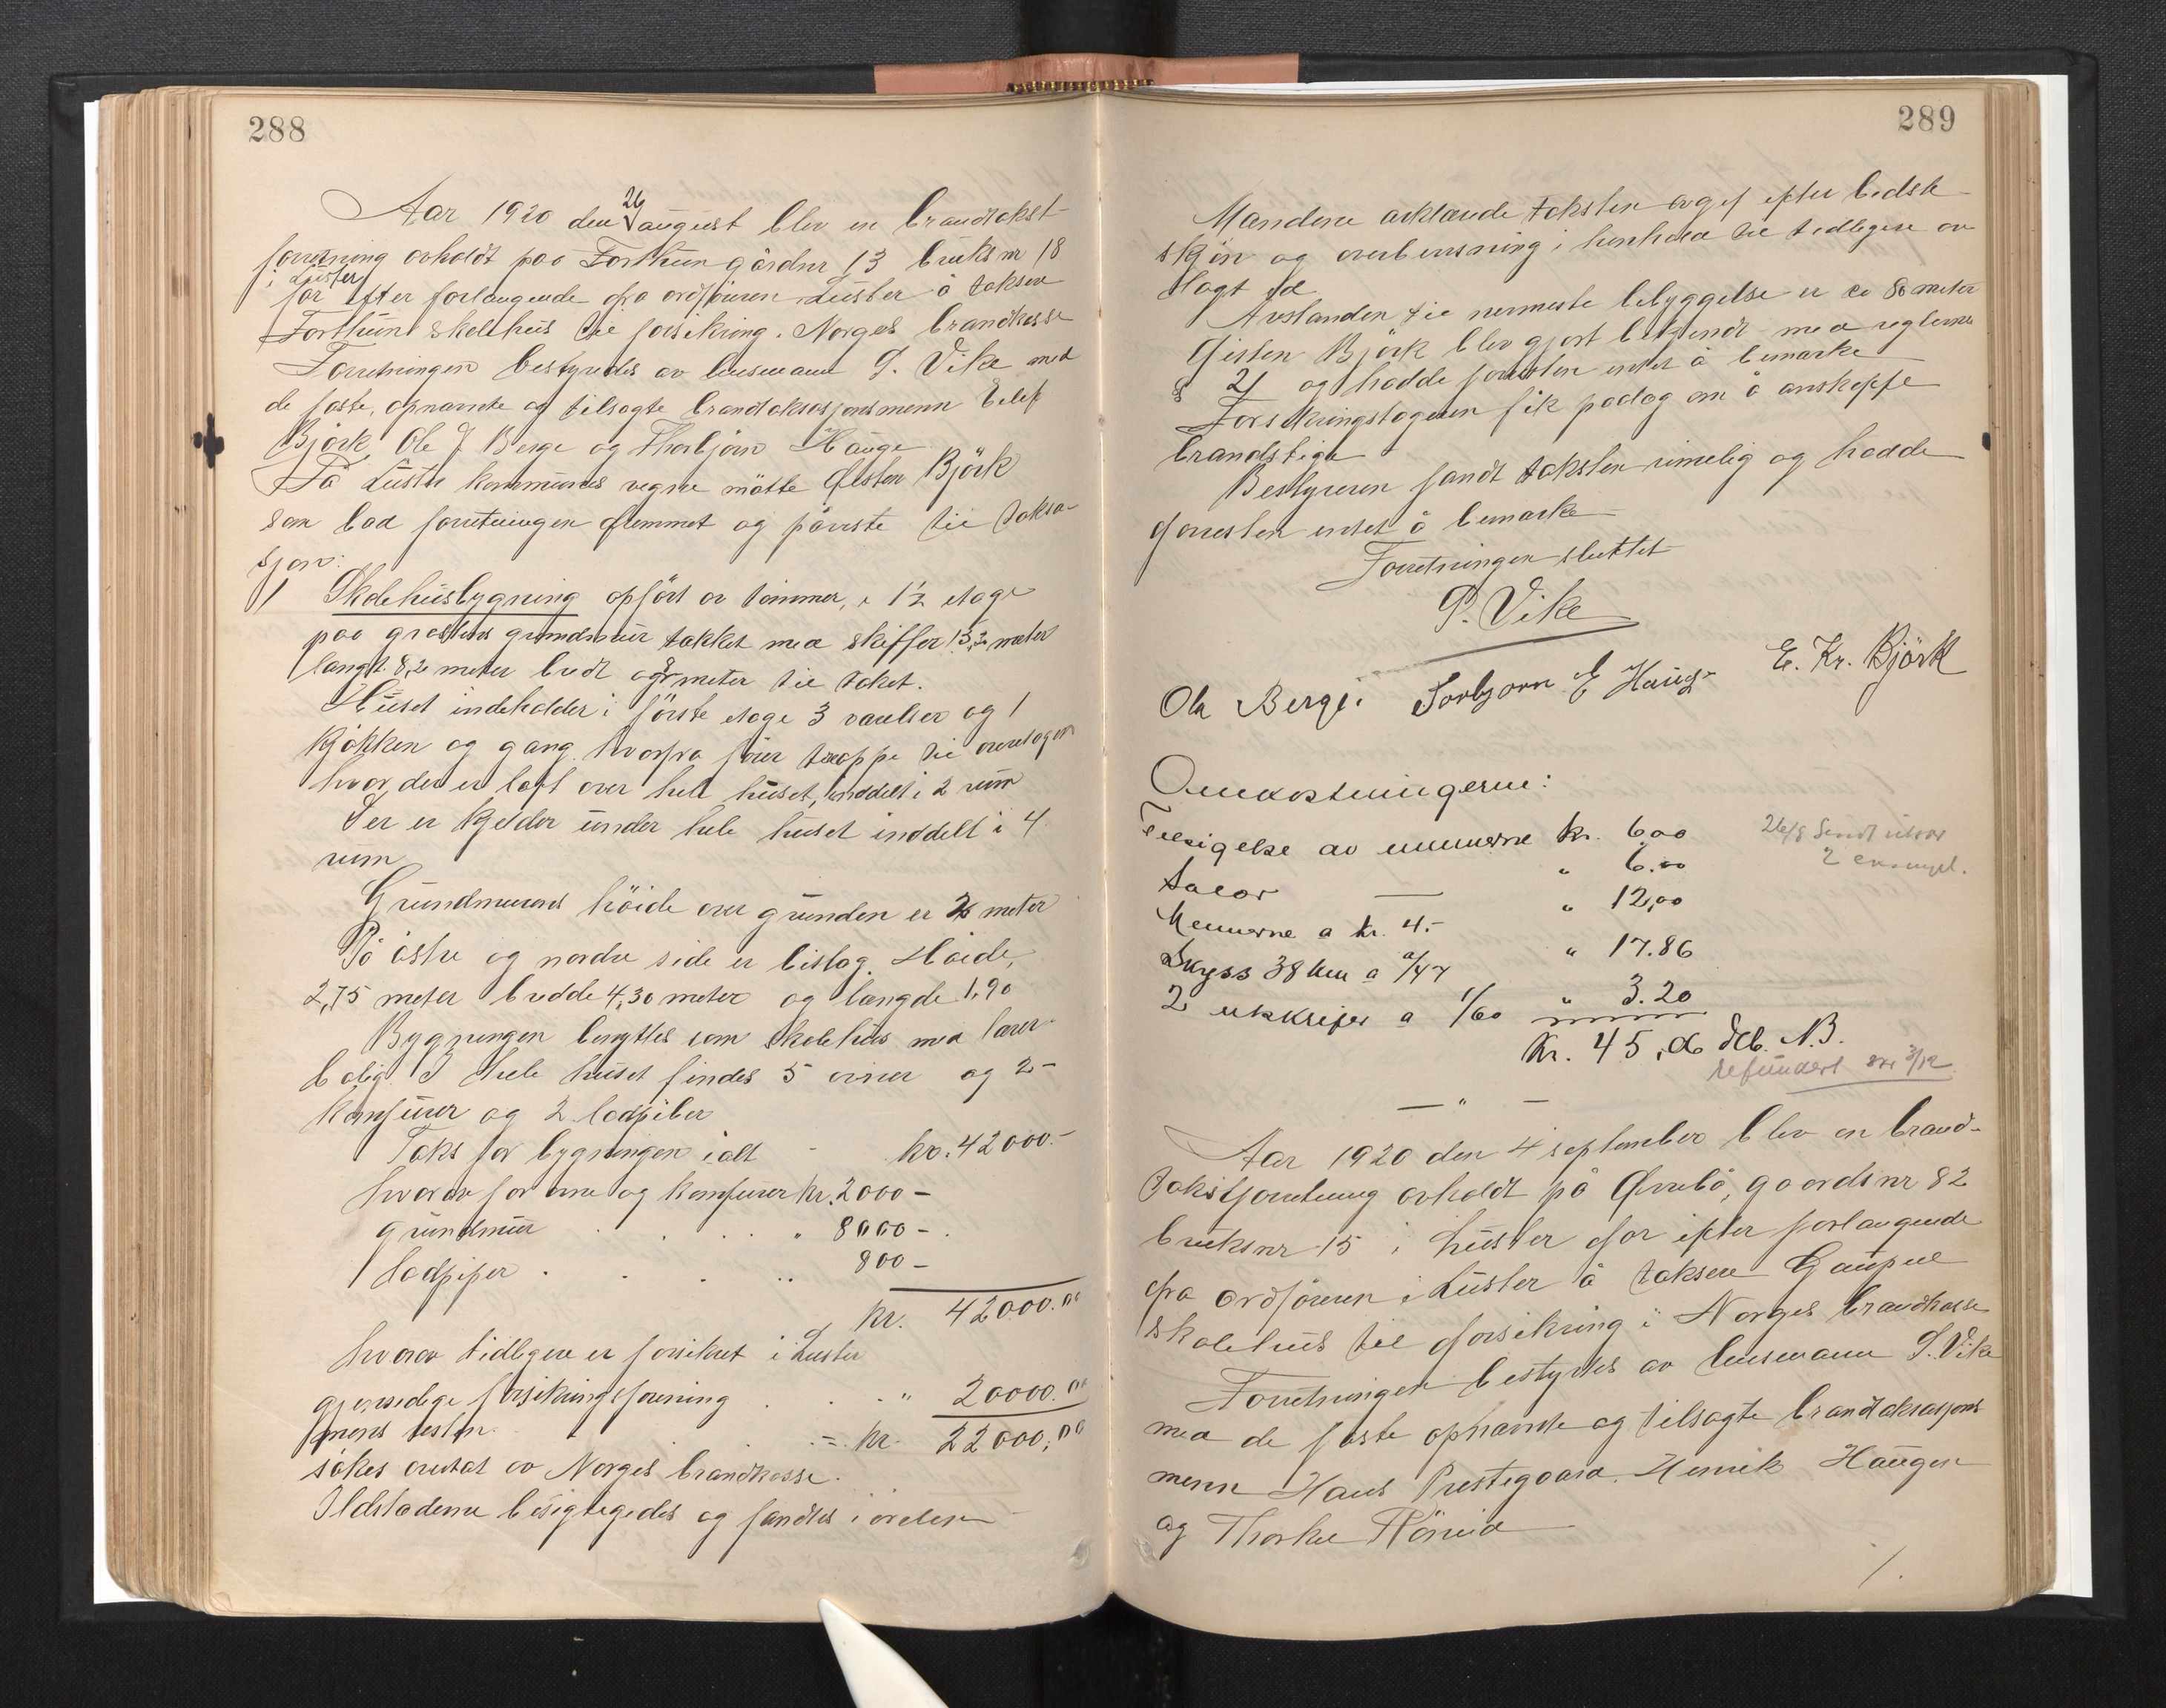 288
Aar 1920 den 26 august blev en brandtakst-
forretning avholdt paa Forthun gårdnr 13 bruksnr 18
i Luster
for efter forlangende fra ordföreren i Luster å taksere
Forthun skolehus til forsikring i Norges brandkasse
Forretningen bestyredes av lensmann P. Vike med
de faste, opnævnte og tilsagte brandtaksasjonsmenn Eilef
Björk Ole J Berge og Thorbjörn Hauge
På Luster kommunes vegne mötte Gisten Björk
som bad forretningen fremmet og påviste til taksa-
sjon:
1 Skolehusbygning opfört av tömmer, i 1½ etage
paa graastens grundmur takket med skiffer 13,2 meter
langt. 8,20 meter bredt og meter til taket.
Huset indeholder i förste etage 3 værelser og 1
kjökken og gang hvorfra förer trappe til overetagen
hvor der er loft over hele huset, inddelt i 2 rum
Der er kjelder under hele huset inddelt i 4
rum
Grundmurens höide over grunden er 2 meter
På östre og nordre side er bislag. Höide,
2,75 meter bredde 4,30 meter og længde 1,90
Bygningen benyttes som skolehus med lærer-
bolig. I hele huset findes 5 ovner og 2-
komfurer og 2 lodpiber
Takst for bygningen ialt - kr. 42000.-
hvorav for ovne og komfurer kr. 2000-
grundmur . . . . " 8000-.
Lodpiper . . . .. 800-
kr. 42000.00
hvorav tidligere er forsikret i Luster
gjensidige forsikringsforening . . . " 20000.00
mens resten . . . = kr. 22000,00
sökes overtat av Norges brandkasse.
Ildstederne besigtigedes og fandtes i orden
289
Mændene erklærte taksten avgit efter bedste
skjön og overbevisning i henhold til tidligere av
lagt ed
Avstanden til nermeste bebyggelse er ca 80 meter
Gisten Björk blev gjort bekjendt med reglernes
§ 21 og hadde forresten intet å bemærke
Forsikringstageren fik paalæg om å anskaffe
brandstige
Bestyreren fandt taksten rimelig og hadde
forresten intet å bemærke
Forretningen sluttet
P. Vike
Ole Berge. Torbjørn E Hauge E. Kr. Björk
Omkostningerne:
Tilsigelse av mennerne kr. 6.00
26/8 Sendt utskr
2 exempl.
Salær — " 6.00
Mennerne a kr. 4.- " 12,00
Skyss 38 km a -/47 " 17.86
2 utskrifter a 1/60 " 3.20
Kr. 45,06 deb. N.B.
refundert 3/12
— " —
Aar 1920 den 4 september blev en brand-
takstforretning avholdt på Øvrebö, gaardsnr 82
bruksnr 15 i Luster for efter forlangende
fra ordföreren i Luster å taksere Gaupne
skolehus til forsikring i Norges brandkasse
Forretningen bestyrtes av lensmann P. Vike
med de faste opnævnte og tilsagte brandtaksasjons
menn Hans Prestegaard. Henrik Haugen
og Thorkel Röneid